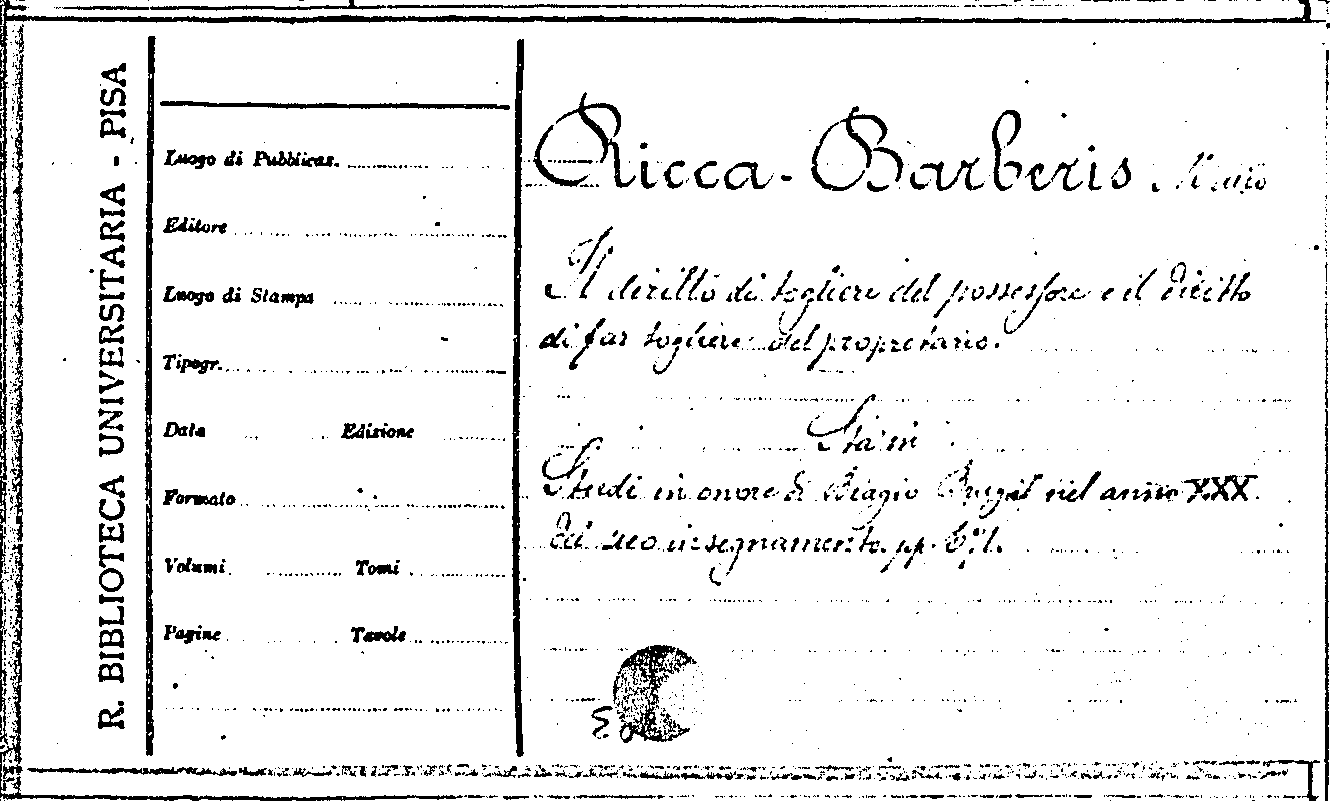 R. BIBLIOTECA UNIVERSITARIA - PISA
Luogo di Pubblicaz.
Editore
Luogo di Stampa
Tipogr.
Data Edizione
Formato
Volumi Tomi
Pagine Tavole
Ricca-Barberis
Il diritto di togliere del possessore e il diritto
di far togliere del propretario.
Studi in onore di Biagio nel anno XXX
del suo insegnamento. pp.